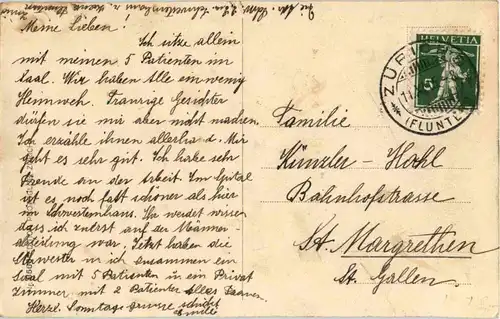 Meine Lieben!
Ich sitze allein
mit meinen 5 Patienten im
Saal. Wir haben Alle ein wenig
Heimweh. Traurige Gesichter
dürfen sie mir aber nicht machen.
Ich erzähle ihnen allerhand. Mir
geht es sehr gut. Ich habe sehr
Freude an der Arbeit. Im Spital
ist es noch fast schöner als hier
im Schwesternhaus. Ihr werdet wissen
dass ich zuerst auf der Männer-
abteilung war. Jetzt haben die
Schwester in ich zusammen ein
Saal mit 5 Patienten in ein Privat
Zimmer mit 2 Patienten alles Frauen.
Herzl. Sonntagsgrüsse schickt
Emilie
HELVETIA
5
ZÜRICH
(FLUNT
Familie
Künzler-Hohl
Bahnhofstrasse
St. Margrethen
St. Gallen.